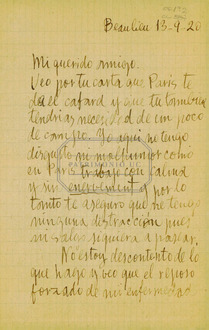 Beaulieu 13-9-20
Mi querido amigo.
Veo por tu carta que Paris te
da el cafard y que tu tambien
tendrias necesidad de un poco
de campo. Yo aqui no tengo
disgustos ni mal humor como
en Paris trabajo con calma
y sin enervement y por lo
tanto te aseguro que no tengo
ninguna distracción pues
ni salgo siquiera a pasear.
No estoy descontento de lo
que hago y veo que el reposo
forzado de mi enfermedad